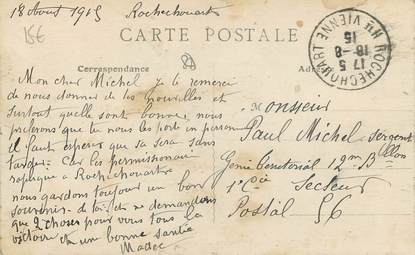 18 Aout 1915 Rochechouart
15€
CARTE POSTALE
Correspondance Adresse
ROCHECHOUART Hte VIENNE
17 5
18-8
15
Mon cher Michel je te remerci
de nous donner de tes nouvelles et
surtout quelle sont bonne, nous
préferons que tu nous les porte en personne
il faut esperer que sa sera sans
tarder. Car les permissionaire
rapplique a Rochechouart
nous gardons toujour un bon
souvenir de toi et ne demandons
que 2 choses pour vous tous la
victoire et un bonne santée
Madec
Monsieur
Paul Michel sergent
Genie Territorial 12me B llon
1e Cie Secteur
Postal 56